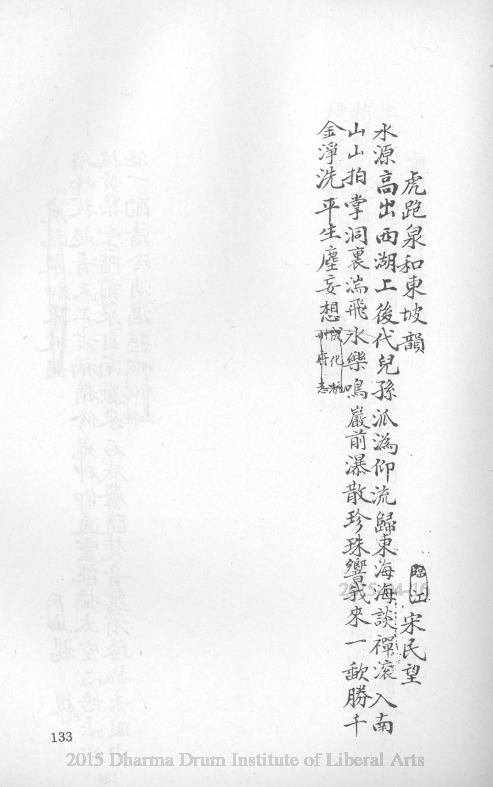 虎跑泉和東坡韻
臨江
宋民望
水源高出西湖上後代兒孫派溈仰流歸東海海談禪滾入南
山山拍掌洞裏湍飛水樂鳴巖前瀑散珍珠響我來一歃勝千
金淨洗平生塵妄想
成化杭
州府志
133
2015 Dharma Drum Institute of Liberal Arts